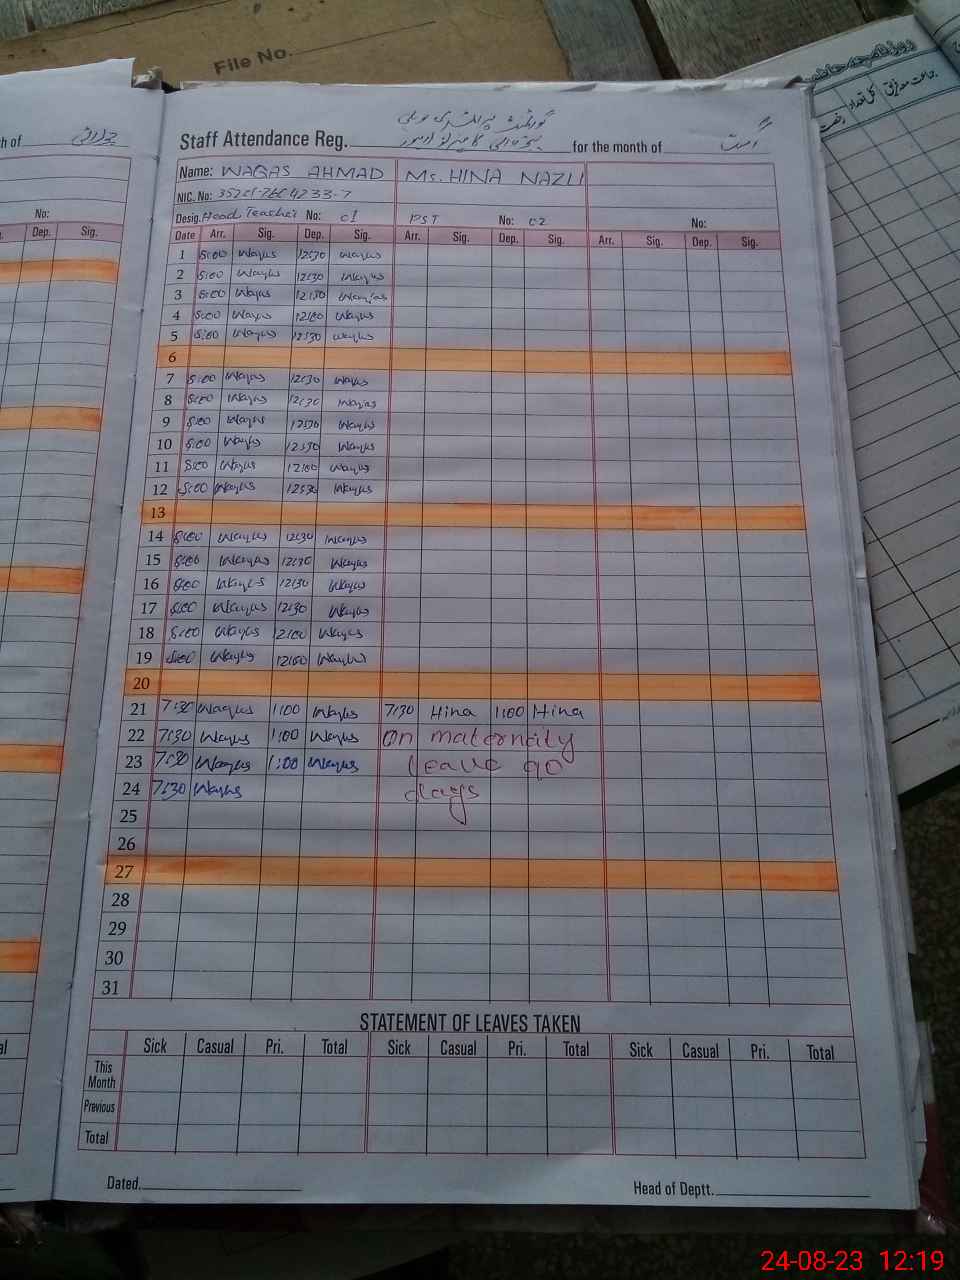 File No.
h of جولائی
No:
Dep. Sig.
Staff Attendance Reg. گورنمنٹ پرائمری for the month of اگست
Name: WAQAS AHMAD Ms. HINA NAZLI
NIC. No:
Desig. Head Teacher No: c1 PST No: c2 No:
Date Arr. Sig. Dep. Sig. Arr. Sig. Dep. Sig. Arr. Sig. Dep. Sig.
1 8:00 Waqas 12:30 Waqas
2 8:00 Waqas 12:30 Waqas
3 8:00 Waqas 12:30 Waqas
4 8:00 Waqas 12:00 Waqas
5 8:00 Waqas 12:30 Waqas
6
7 8:00 Waqas 12:30 Waqas
8 8:00 Waqas 12:30 Waqas
9 8:00 Waqas 12:30 Waqas
10 8:00 Waqas 12:30 Waqas
11 8:00 Waqas 12:00 Waqas
12 8:00 Waqas 12:30 Waqas
13
14 8:00 Waqas 12:30 Waqas
15 8:00 Waqas 12:30 Waqas
16 8:00 Waqas 12:30 Waqas
17 8:00 Waqas 12:30 Waqas
18 8:00 Waqas 12:00 Waqas
19 8:00 Waqas 12:00 Waqas
20
21 7:30 Waqas 1:00 Waqas 7:30 Hina 1:00 Hina
22 7:30 Waqas 1:00 Waqas On maternity
23 7:30 Waqas 1:00 Waqas leave 90
24 7:30 Waqas days
25
26
27
28
29
30
31
STATEMENT OF LEAVES TAKEN
Sick Casual Pri. Total Sick Casual Pri. Total Sick Casual Pri. Total
This Month
Previous
Total
Dated. Head of Deptt.
24-08-23 12:19